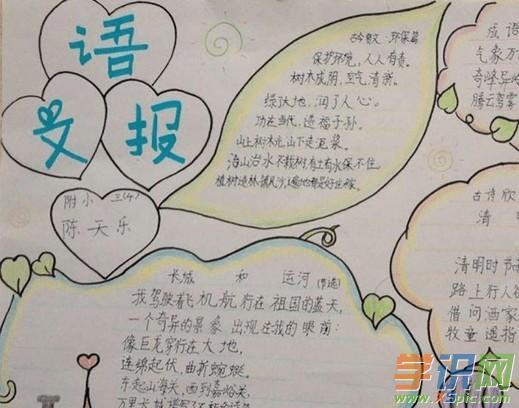 语
文报
附小 三(4)
陈天乐
古今贤文·环保篇
保护环境,人人有责。
树木成阴,空气清新。
绿了大地,润了人心。
功在当代,造福子孙。
山上树木光,山下走泥浆。
治山治水不栽树,有土有水保不住。
植树造林,
成语
气象万
奇峰异
腾云驾雾
古诗欣
清明
清明时节
路上行人
借问酒家
牧童遥指
长城和运河(节选)
我驾驶着飞机航行在祖国的蓝天,
一个奇异的景象出现在我的眼前:
像巨龙穿行在大地,
连绵起伏,曲折蜿蜒。
东起山海关,西到嘉峪关,
万里长
学识网
www.xspic.com